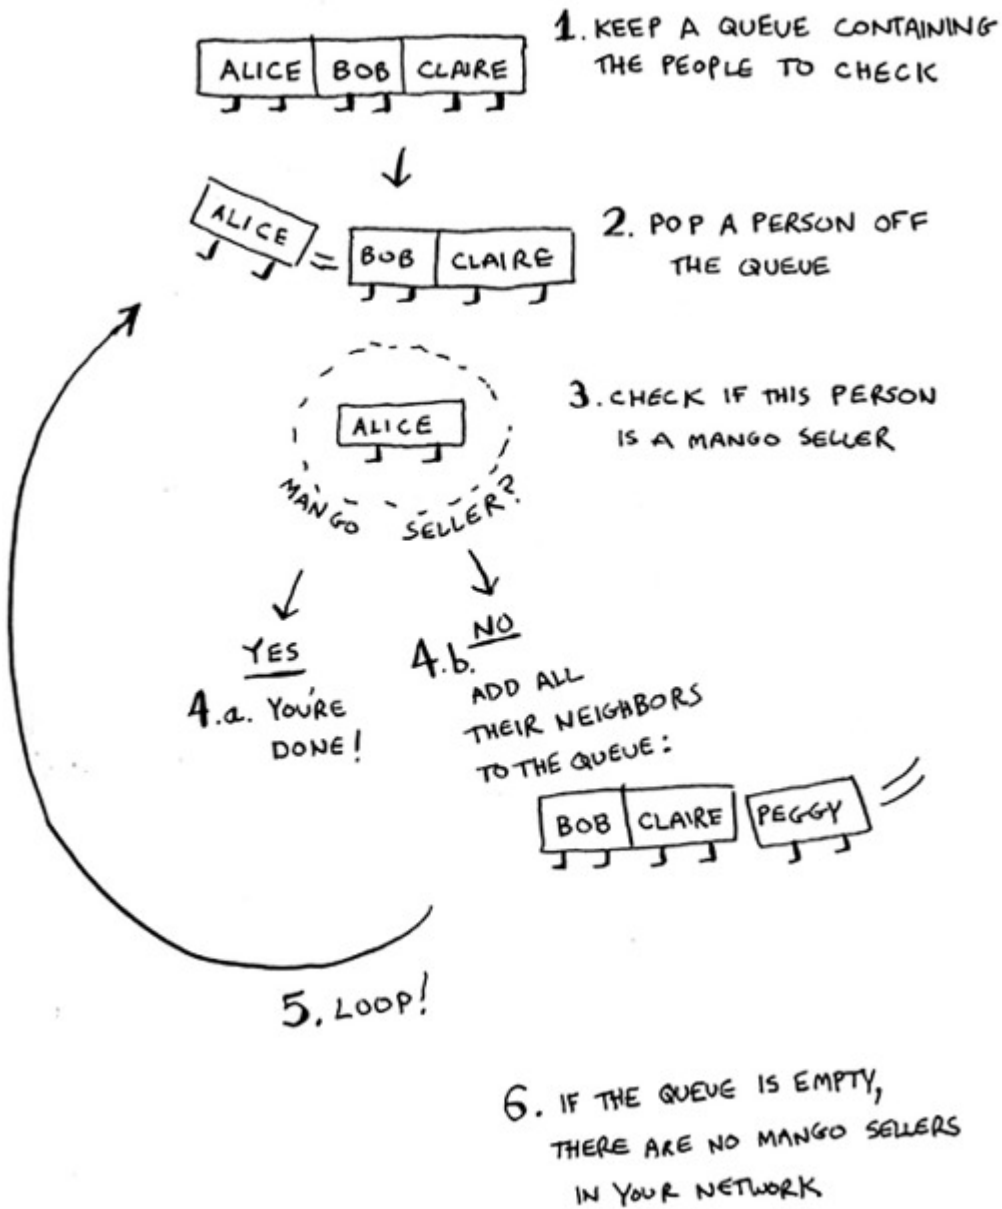 1. KEEP A QUEUE CONTAINING
THE PEOPLE TO CHECK
ALICE BOB CLAIRE
ALICE
BOB CLAIRE
2. POP A PERSON OFF
THE QUEUE
ALICE
MANGO SELLER?
3. CHECK IF THIS PERSON
IS A MANGO SELLER
YES
4.a. YOU'RE
DONE!
NO
4.b.
ADD ALL
THEIR NEIGHBORS
TO THE QUEUE:
BOB CLAIRE PEGGY
5. LOOP!
6. IF THE QUEUE IS EMPTY,
THERE ARE NO MANGO SELLERS
IN YOUR NETWORK